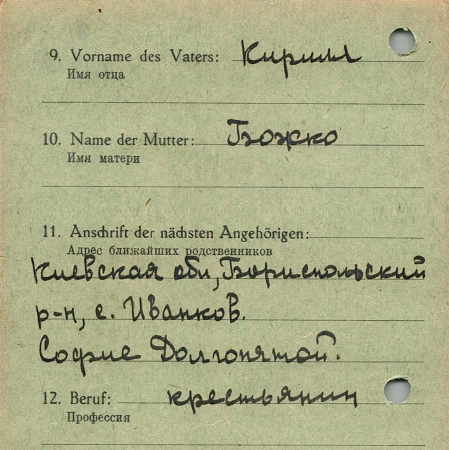 9. Vorname des Vaters: Кирилл
Имя отца
10. Name der Mutter: Божко
Имя матери
11. Anschrift der nächsten Angehörigen:
Адрес ближайших родственников
Киевская обл, Бориспольский
р-н, с. Иванков.
Софие Долгопятой.
12. Beruf: крестьянин
Профессия